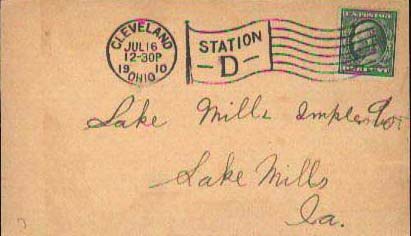 CLEVELAND
JUL 16
12-30P
1910
OHIO
STATION
D
U.S. POSTAGE
Lake Mills Implem Co
Lake Mills
Ia.